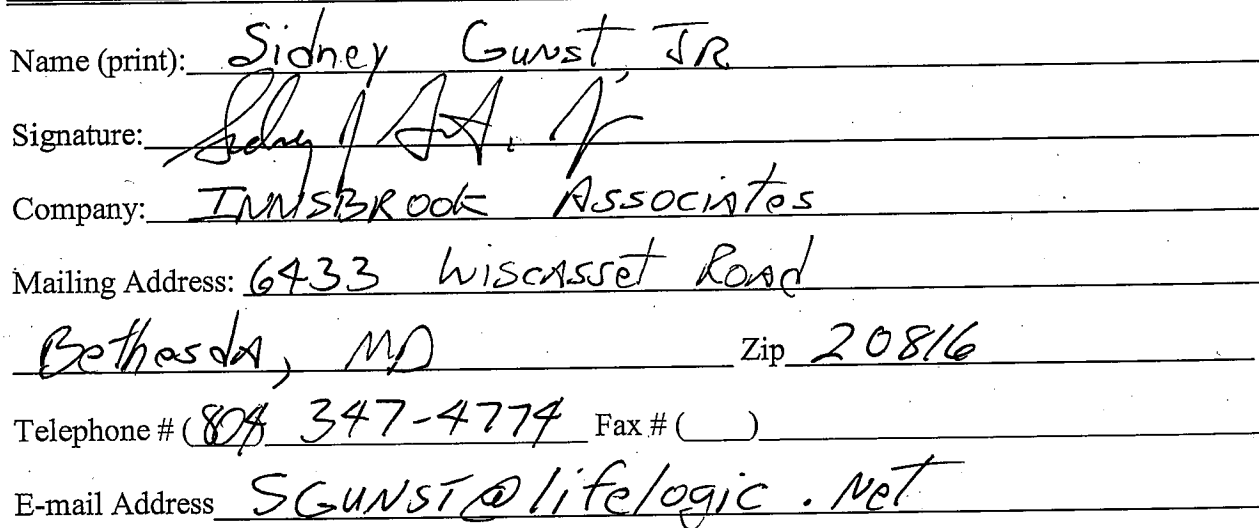 Name (print): Sidney Gunst, JR
Signature: Sidney J Gunst, Jr
Company: INNSBROOK Associates
Mailing Address: 6433 Wiscasset Road
Bethesda, MD Zip 20816
Telephone # (804 347-4774 Fax # ( )
E-mail Address SGUNST@lifelogic.Net